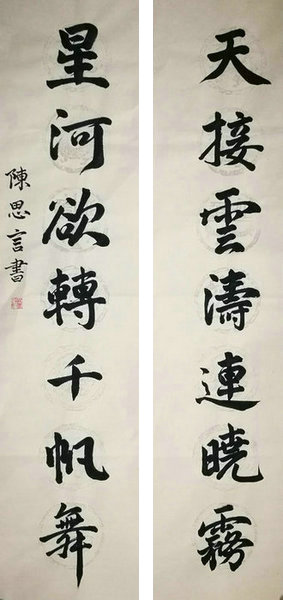 天接雲濤連曉霧
星河欲轉千帆舞
陳思言書